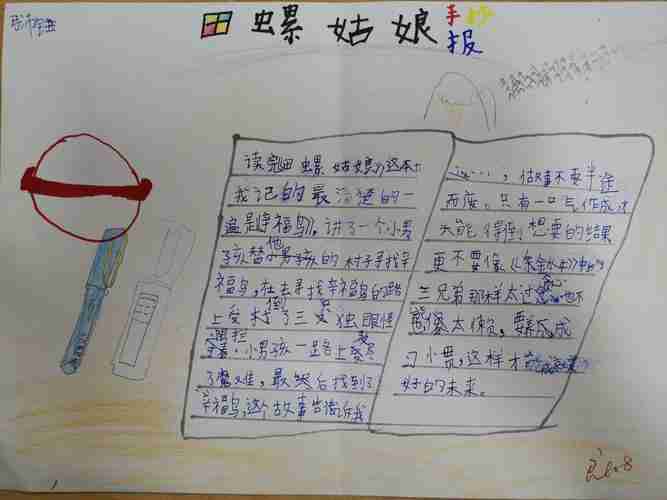 田 虫累 姑 娘 手抄
报
读完田 虫累 姑娘》这本书
我记的最清楚的一
篇是《幸福鸟》,讲了一个小男
孩替他小男孩的村子寻找幸
福鸟,在去寻找幸福鸟的路
上受到了三只独眼怪
阻拦,小男孩一路上受尽
了磨难,最然后找到了
幸福鸟,这个故事告诉我
做事不要半途
而废,只有一口气作成
能得到想要的结果
更不要像《
三兄弟那样太过 也不
能太懒,要养成
习小惯,这样才能
好的未来。